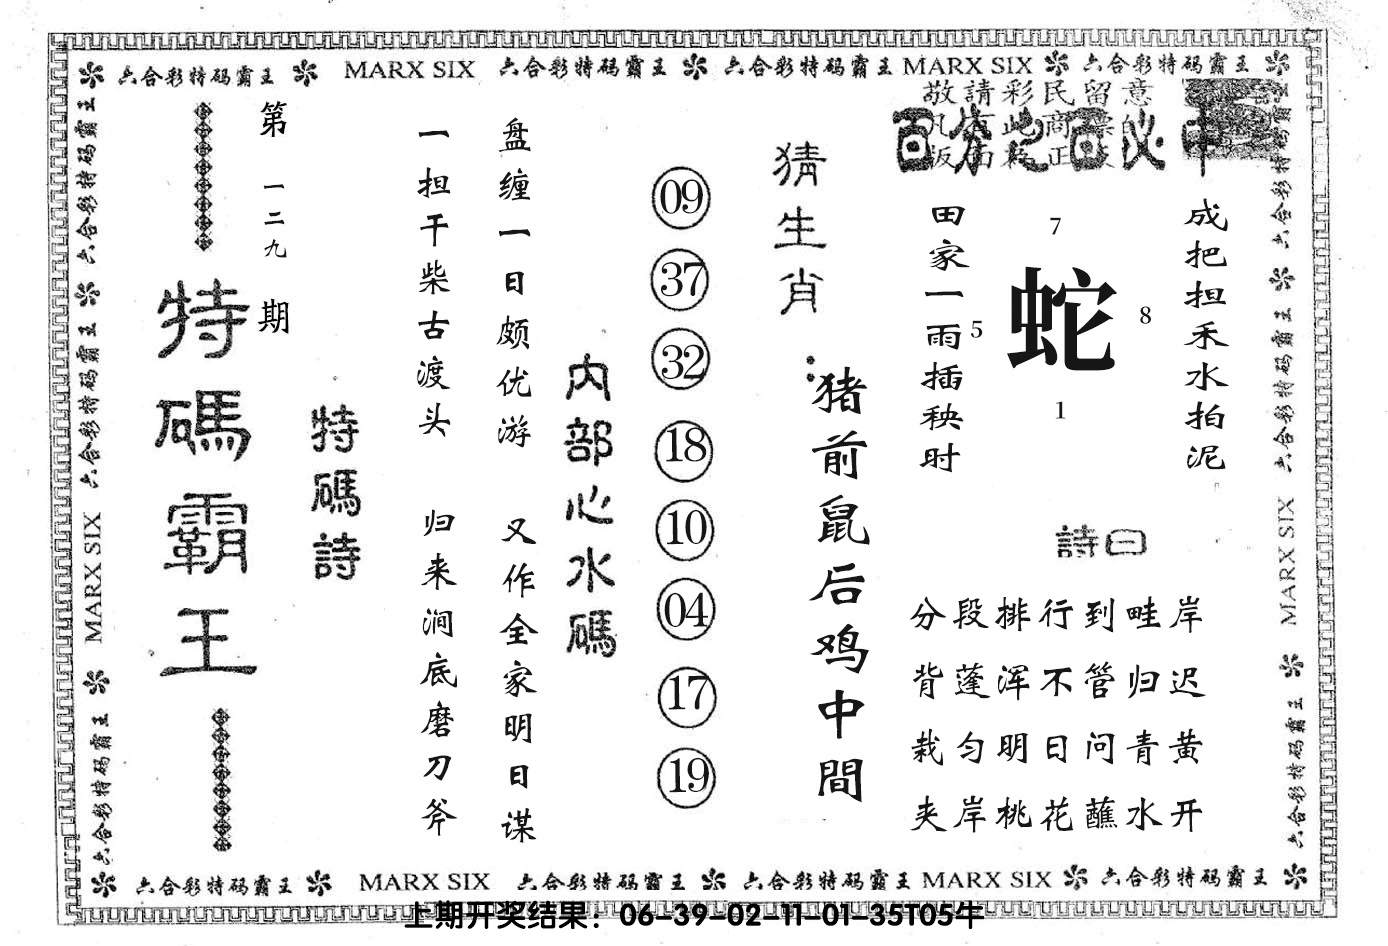 六合彩特码霸王 MARX SIX 六合彩特码霸王 六合彩特码霸王 MARX SIX 六合彩特码霸王
六合彩特码霸王 六合彩特码霸王 MARX SIX 六合彩特码霸王
第一二九期
特碼霸王
特碼詩
一担干柴古渡头 归来涧底磨刀斧
盘缠一日颇优游 又作全家明日谋
内部心水碼
09
37
32
18
10
04
17
19
猜生肖：
猪前鼠后鸡中間
敬請彩民留意
百分之百必中
田家一雨插秧时
7
5
蛇
8
1
成把担禾水拍泥
詩曰
分段排行到畦岸
背蓬浑不管归迟
栽匀明日问青黄
夹岸桃花蘸水开
六合彩特码霸王 MARX SIX 六合彩特码霸王
六合彩特码霸王 MARX SIX 六合彩特码霸王 六合彩特码霸王 MARX SIX 六合彩特码霸王
上期开奖结果：06-39-02-11-01-35T05牛